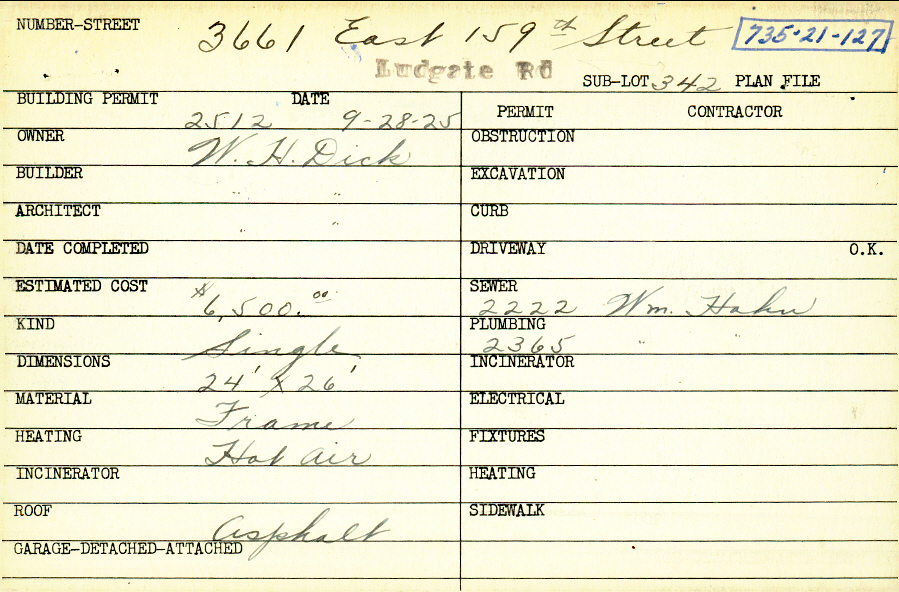 NUMBER-STREET 3661 East 159th Street 735-21-127
Ludgate Rd
SUB-LOT 342 PLAN FILE
BUILDING PERMIT DATE
2512 9-28-25
OWNER W. H. Dick
BUILDER " "
ARCHITECT " "
DATE COMPLETED
ESTIMATED COST $6,500.00
KIND Single
DIMENSIONS 24' x 26'
MATERIAL Frame
HEATING Hot air
INCINERATOR
ROOF asphalt
GARAGE-DETACHED-ATTACHED
PERMIT CONTRACTOR
OBSTRUCTION
EXCAVATION
CURB
DRIVEWAY O.K.
SEWER
2222 Wm. Hahn
PLUMBING
2365 " "
INCINERATOR
ELECTRICAL
FIXTURES
HEATING
SIDEWALK